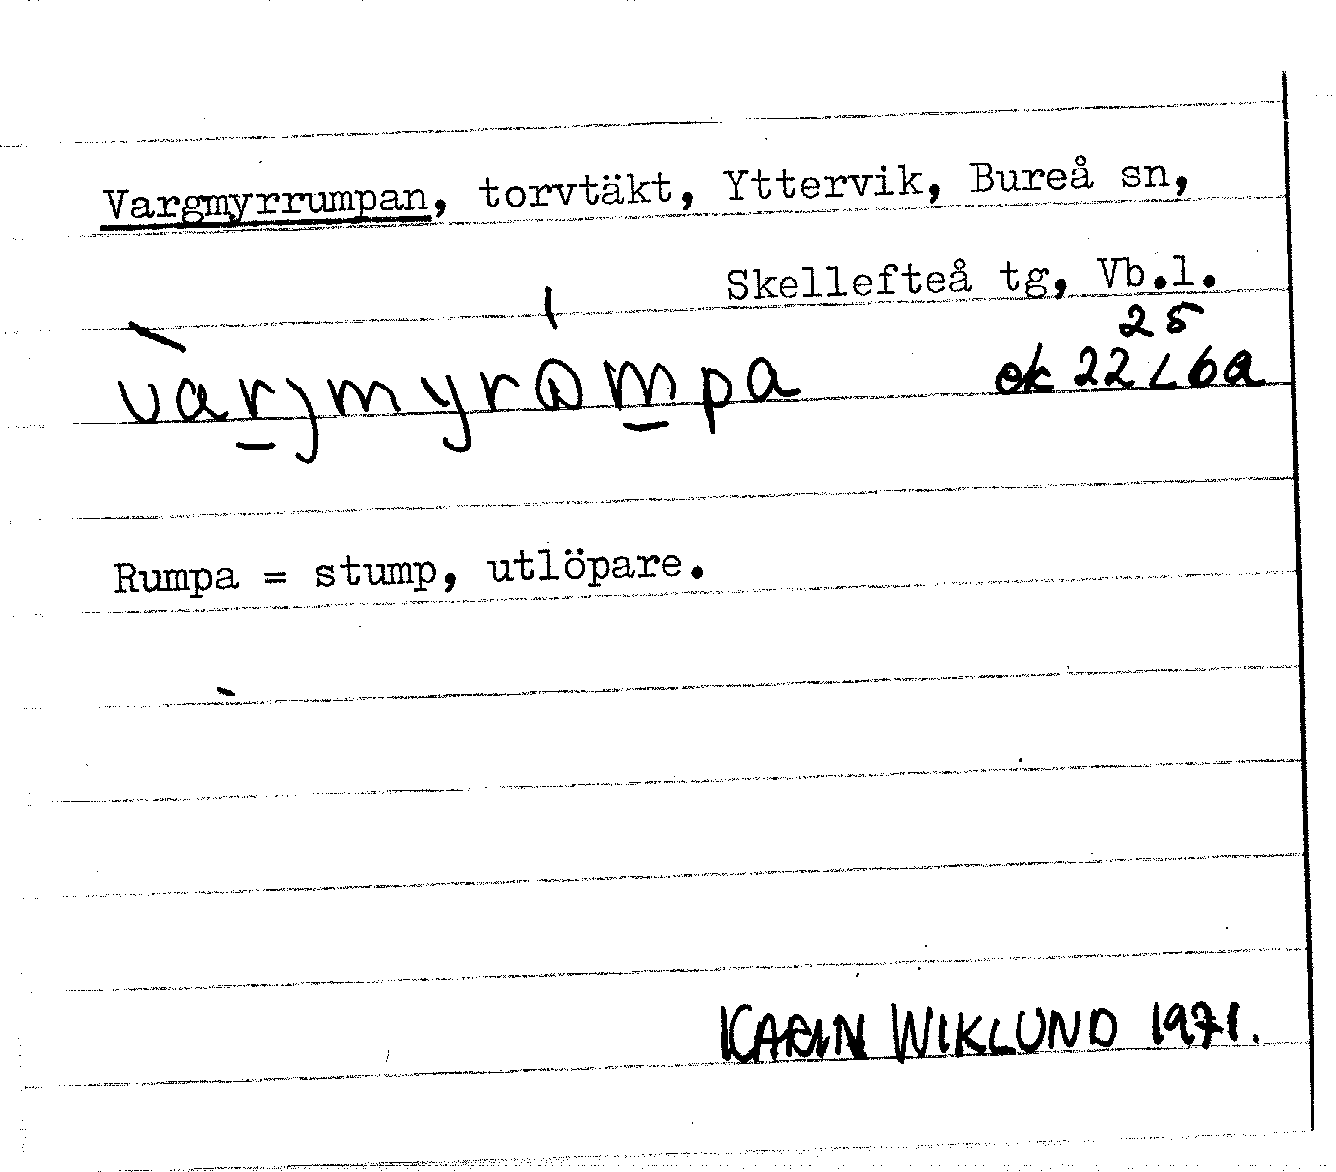 Vargmyrrumpan, torvtäkt, Yttervik, Bureå sn,
Skellefteå tg, Vb.l.
25
ek 22 L 6a
Rumpa = stump, utlöpare.
KARIN WIKLUND 1971.